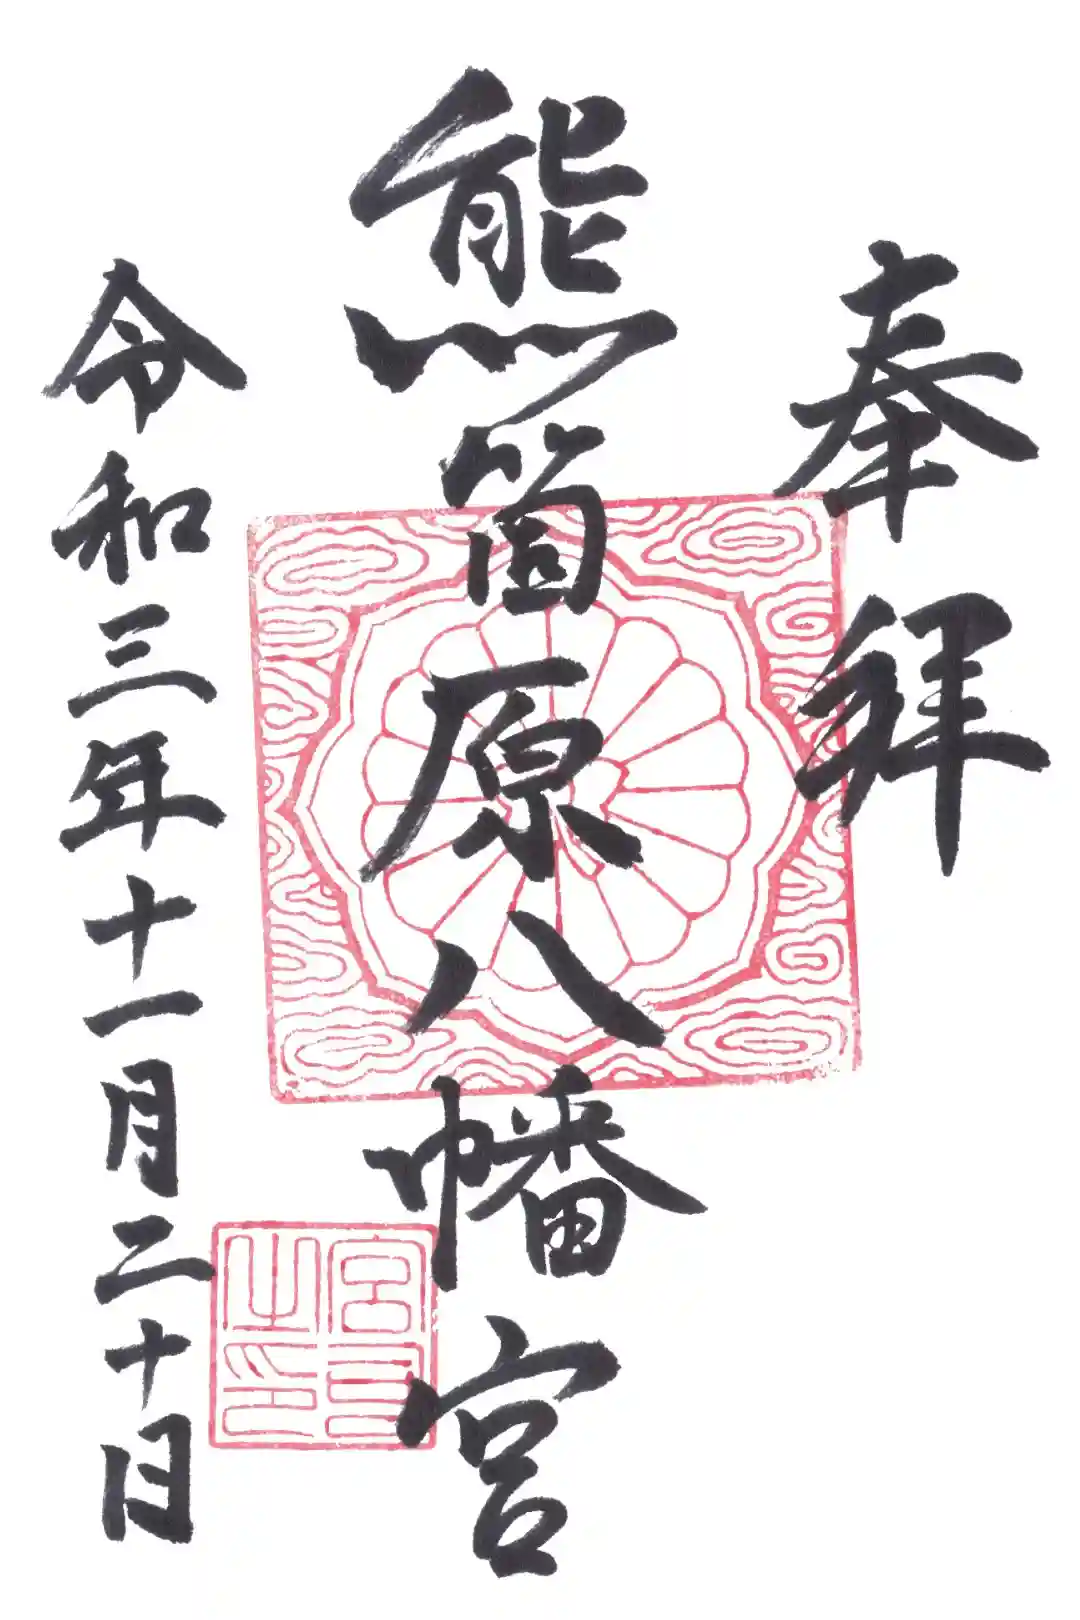 奉拝
熊箇原八幡宮
令和三年十一月二十日
宮司之印